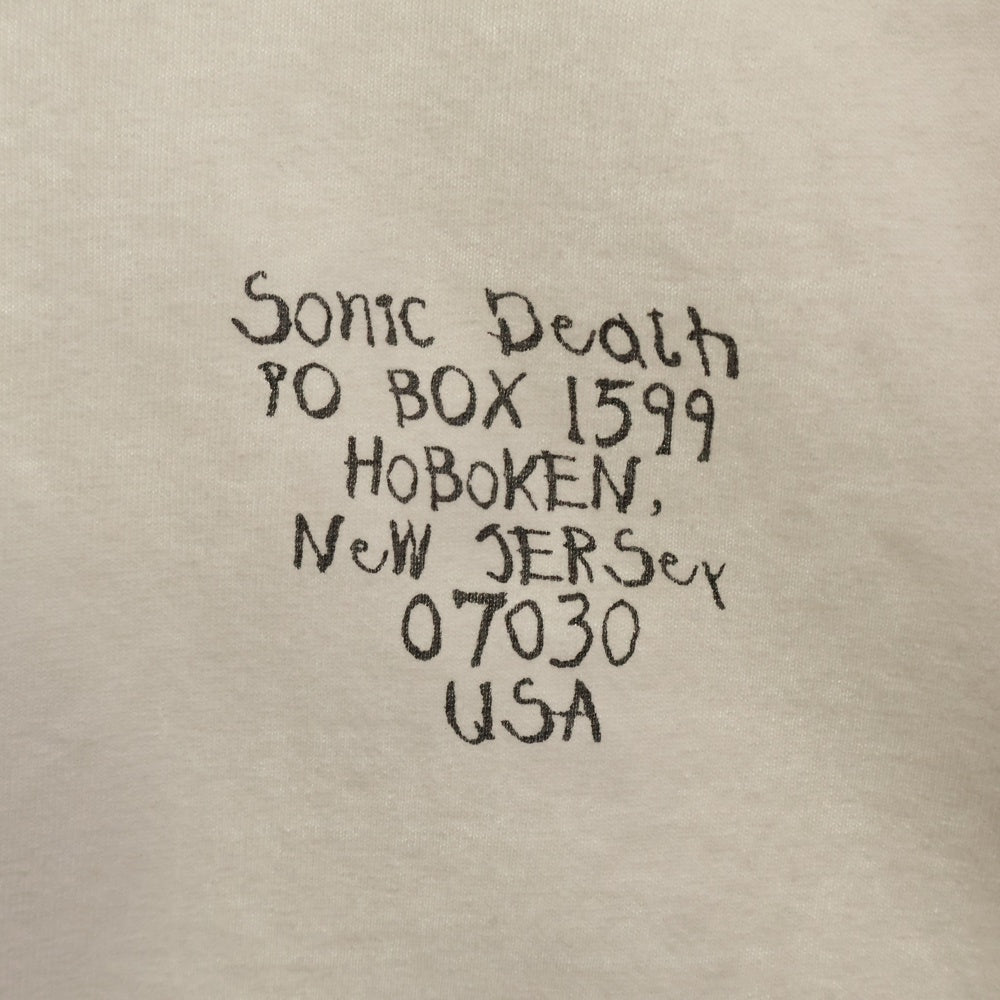 Sonic Death
PO BOX 1599
HOBOKEN,
NeW JERSey
07030
USA